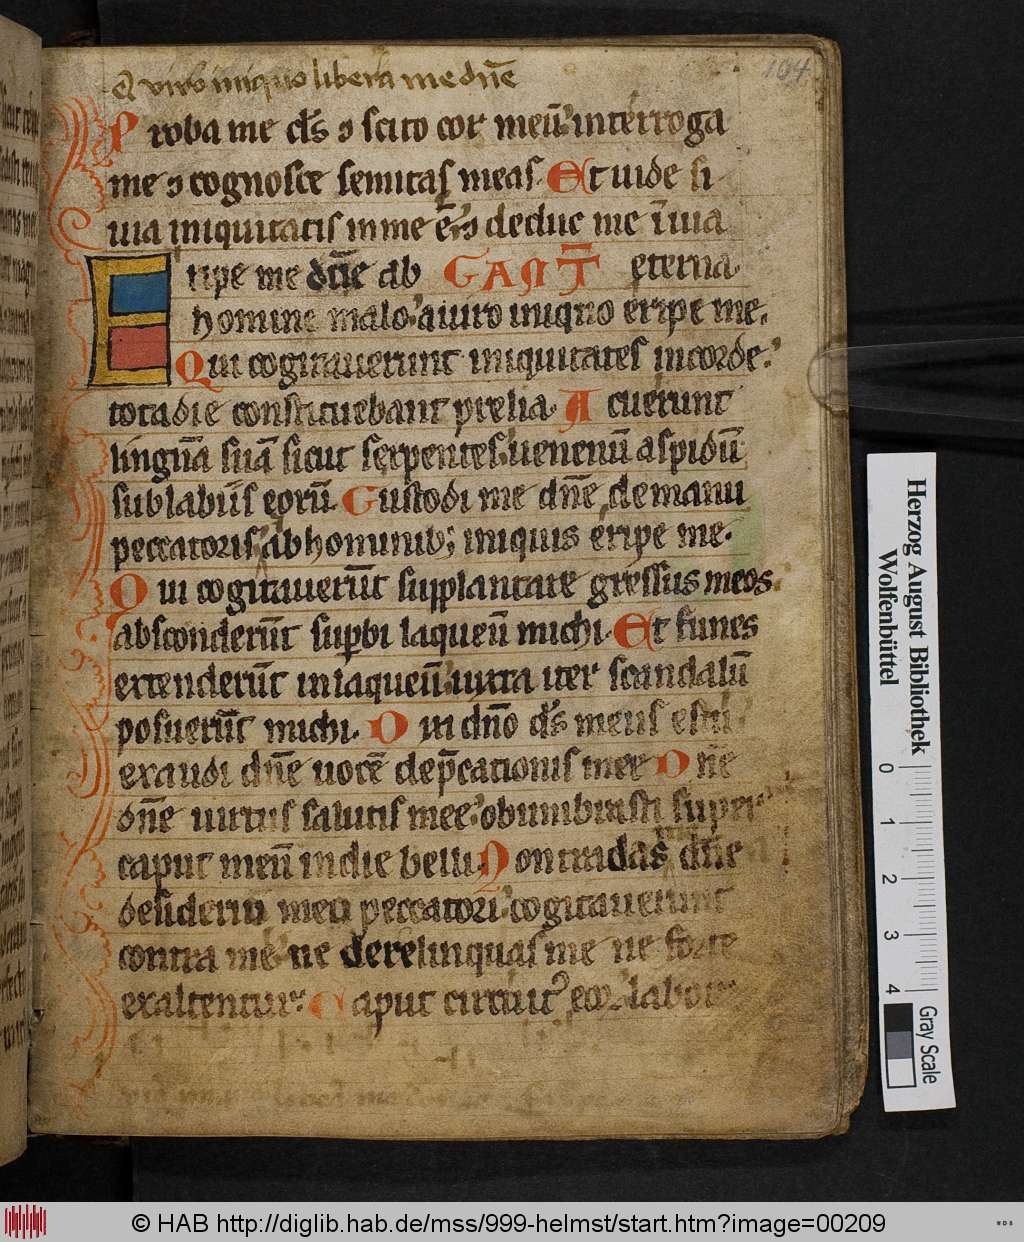 A viro iniquo libera me dn̄e
104
Proba me ds̄ ⁊ scito cor meū. interroga
me ⁊ cognosce semitas meas. Et uide si
uia iniquitatis in me ē. ⁊ deduc me ī uia
eterna.
Eripe me dn̄e ab
homine malo. a uiro iniquo eripe me.
Qui cogitauerunt iniquitates in corde.
tota die constituebant prelia. Acuerunt
linguā suā sicut serpentes. uenenū aspidū
sub labiis eorū. Custodi me dn̄e de manu
peccatoris. ab hominib; iniquis eripe me.
Qui cogitauerūt supplantare gressus meos
absconderūt supbi laqueū michi. Et funes
extenderūt in laqueū. iuxta iter scandalū
posuerūt michi. Dixi dn̄o ds̄ meus es tu.
exaudi dn̄e uocē dep̄cationis mee. Dn̄e
dn̄e uirtus salutis mee. obumbrasti super
caput meū in die belli. Non tradas dn̄e
desiderio meo peccatori. cogitauerunt
contra me. ne derelinquas me ne forte
exaltentur. Caput circuit⁹ eoꝝ. labor
Herzog August Bibliothek
Wolfenbüttel
0 1 2 3 4
Gray Scale
© HAB http://diglib.hab.de/mss/999-helmst/start.htm?image=00209